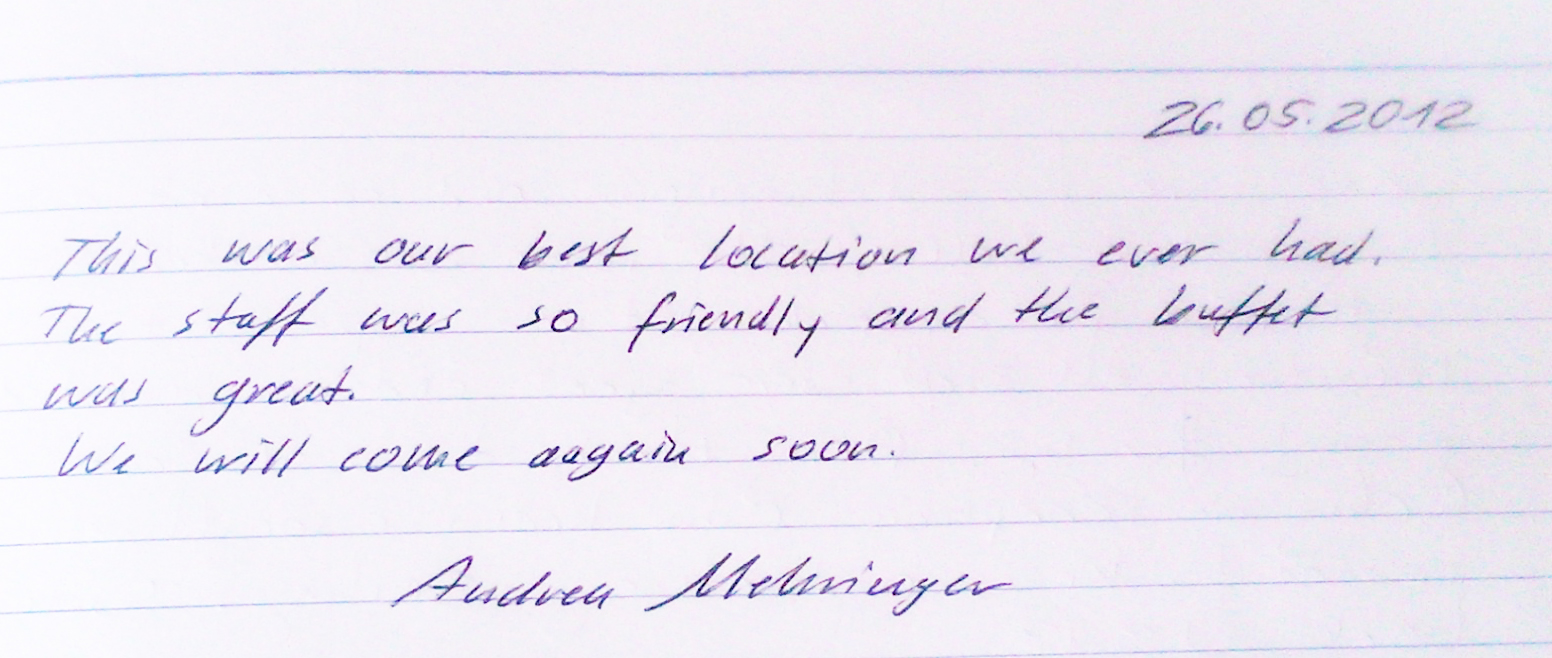 26.05.2012
This was our best location we ever had.
The staff was so friendly and the buffet
was great.
We will come aagain soon.
Andrea Mehringer